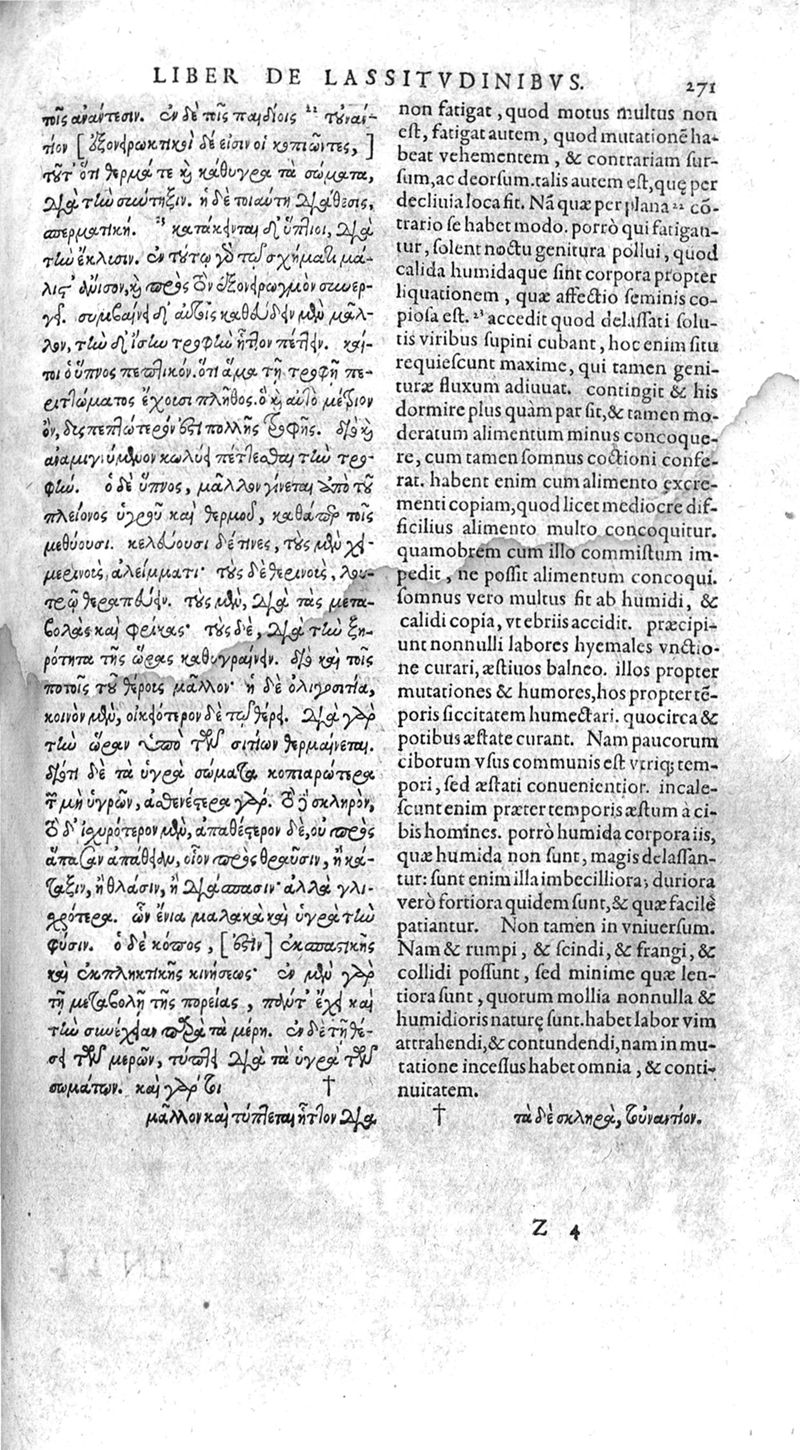 LIBER DE LASSITVDINIBVS. 271
τοῖς ἀνάντεσιν. ἐν δὲ τοῖς παιδίοις ²² τοὐναν-
τίον [ ὀξονειρωκτικοὶ δέ εἰσιν οἱ κοπιῶντες, ]
τοῦτ' ὅτι θερμά τε καὶ κάθυγρα τὰ σώματα,
διὰ τὴν σύντηξιν. ἡ δὲ τοιαύτη διάθεσις,
σπερματική. ²³ κατάκεινται δ' ὕπτιοι, διὰ
τὴν ἔκλισιν. ἐν τούτῳ γὰρ τῷ σχήματι μά-
λιστ' ἄνισον, καὶ πρὸς ὃν ἐξονειρωγμὸν συνερ-
γεῖ. συμβαίνει δ' αὐτοῖς καθεύδειν μὲν μᾶλ-
λον, τὴν δ' ἴσην τροφὴν ἧττον πέττειν. καί-
τοι ὁ ὕπνος πεπτικόν. ὅτι ἅμα τῇ τροφῇ πε-
ριττώματος ἔχουσι πλῆθος. ὃ καὶ αὐτὸ μέτριον
ὂν, δυσπεπτότερόν ἐστι πολλῆς τροφῆς. διὸ καὶ
ἀναμιγνύμενον κωλύει πέττεσθαι τὴν τρο-
φήν. ὁ δὲ ὕπνος, μᾶλλον γίνεται ἀπὸ τοῦ
πλείονος ὑγροῦ καὶ θερμοῦ, καθάπερ τοῖς
μεθύουσι. κελεύουσι δέ τινες, τοὺς μὲν χει-
μερινοὺς, ἀλείμματι· τοὺς δὲ θερινοὺς, λου-
τρῷ θεραπεύειν. τοὺς μὲν, διὰ τὰς μετα-
βολὰς καὶ φρίκας· τοὺς δὲ, διὰ τὴν ξη-
ρότητα τῆς ὥρας καθυγραίνειν. διὸ καὶ τοῖς
ποτοῖς τοῦ θέρους μᾶλλον· ἡ δὲ ὀλιγοσιτία,
κοινὸν μὲν, οἰκειότερον δὲ τῷ θέρει. διὰ γὰρ
τὴν ὥραν ὑπὸ τῶν σιτίων θερμαίνεται.
διότι δὲ τὰ ὑγρὰ σώματα κοπιαρώτερα
τῶν μὴ ὑγρῶν, ἀσθενέστερα γάρ. τὸ γὰρ σκληρὸν,
τὸ δ' ἰσχυρότερον μὲν, ἀπαθέστερον δὲ, οὐ πρὸς
ἅπασαν ἀπάθειαν, οἷον πρὸς θραῦσιν, ἢ κά-
ταξιν, ἢ θλάσιν, ἢ διάσπασιν· ἀλλὰ γλι-
χρότερα. ὧν ἔνια μαλακὰ καὶ ὑγρὰ τὴν
φύσιν. ὁ δὲ κόπος, [ἐστὶν] ἐκσπαστικῆς
καὶ ἐκπληκτικῆς κινήσεως· ἐν μὲν γὰρ
τῇ μεταβολῇ τῆς πορείας, πολύτ' ἔχει καὶ
τὴν συνέχειαν παρὰ τὰ μέρη. ἐν δὲ τῇ θέ-
σει τῶν μερῶν, τύπτει διὰ τὰ ὑγρὰ τῶν
σωμάτων. καὶ γὰρ ὅτι †
μᾶλλον καὶ τύπτεται ἧττον διὰ † τὰ δὲ σκληρὰ, τοὐναντίον.
non fatigat, quod motus multus non
est, fatigat autem, quod mutationē ha-
beat vehementem, & contrariam sur-
sum, ac deorsum. talis autem est, quę per
decliuia loca fit. Nā quæ per plana ²² cō-
trario se habet modo. porrò qui fatigan-
tur, solent noctu genitura pollui, quod
calida humidaque sint corpora propter
liquationem, quæ affectio seminis co-
piosa est. ²³ accedit quod delassati solu-
tis viribus supini cubant, hoc enim situ
requiescunt maxime, qui tamen geni-
turæ fluxum adiuuat. contingit & his
dormire plus quàm par sit, & tamen mo-
deratum alimentum minus concoque-
re, cum tamen somnus coctioni confe-
rat. habent enim cum alimento excre-
menti copiam, quod licet mediocre dif-
ficilius alimento multo concoquitur.
quamobrem cum illo commistum im-
pedit, ne possit alimentum concoqui.
somnus vero multus fit ab humidi, &
calidi copia, vt ebriis accidit. præcipi-
unt nonnulli labores hyemales vnctio-
ne curari, æstiuos balneo. illos propter
mutationes & humores, hos propter tē-
poris siccitatem humectari. quocirca &
potibus æstate curant. Nam paucorum
ciborum vsus communis est vtriq; tem-
pori, sed æstati conuenientior. incale-
scunt enim præter temporis æstum à ci-
bis homines. porrò humida corpora iis,
quæ humida non sunt, magis delassan-
tur: sunt enim illa imbecilliora; duriora
verò fortiora quidem sunt, & quæ facilè
patiantur. Non tamen in vniuersum.
Nam & rumpi, & scindi, & frangi, &
collidi possunt, sed minime quæ len-
tiora sunt, quorum mollia nonnulla &
humidioris naturę sunt. habet labor vim
attrahendi, & contundendi, nam in mu-
tatione incessus habet omnia, & conti-
nuitatem.
Z 4